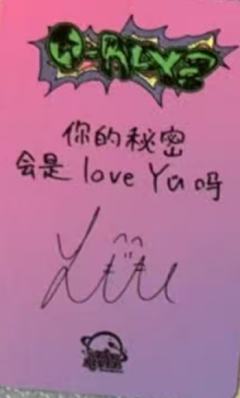 O-RLY?
你的秘密
会是 love Yu 吗